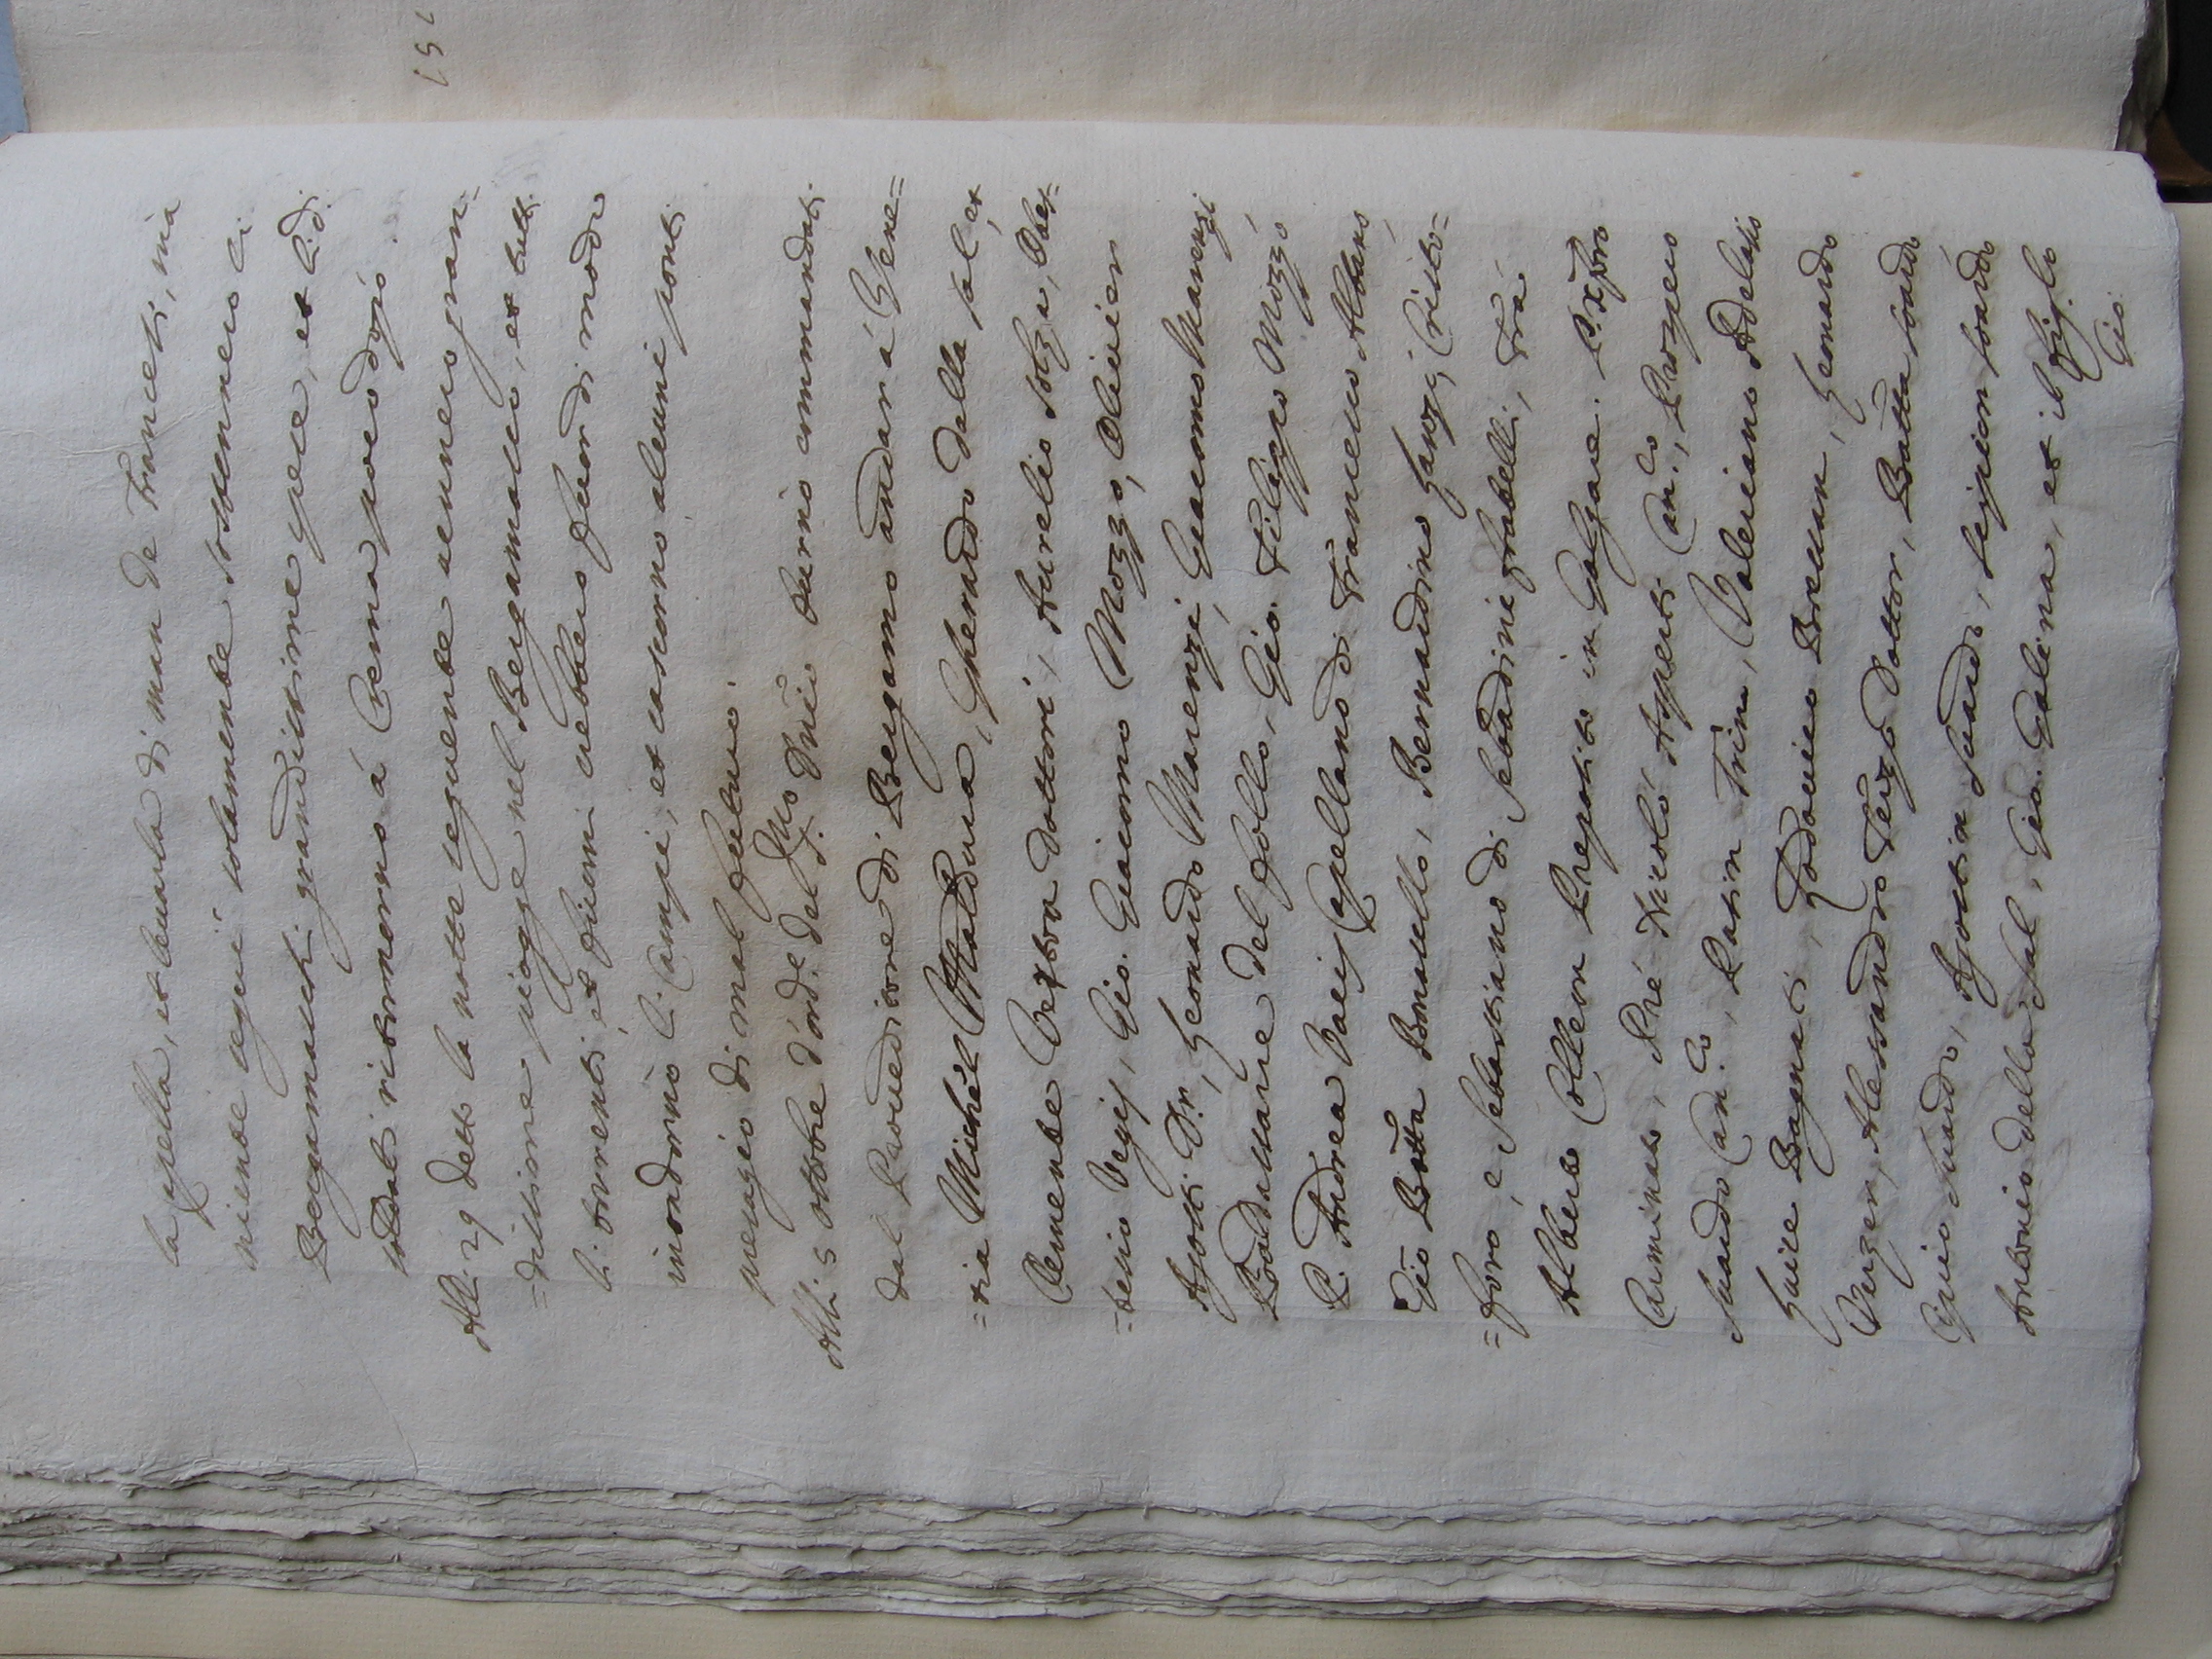 la Capella, et levarla di man de Francesi, ma
niente seguì solamente sostennero li
Bergamaschi grandissime spese, et li d.i
soldati ritornorno à Crema poco dopò.
Alli 29 detto la notte seguente vennero gran=
=dissime pioggie nel Bergamasco, et tutti
li torrenti, et fiumi crebbero fuor di modo
inondorno li Campi, et cascorno alcuni ponti
presagio di mal futuro.
Alli 5 ottobre d'ord.e del Dnio furno commandati
dal Proveditore di Bergamo andar à Vene=
=tia Michel Maldura, Gherardo della Sal, et
Clemente Vertova dottori, Aurelio Solza, Obes=
=tesio Vegij, Gio. Giacomo Mozzo, Olivier
Agosti D.r, Leonardo Marenzi, Giacomo Marenzi
Baldassarre del Pollo, Gio. Filippo Mozzo
P. Andrea Vaij Capellano di Francesco Albano,
Gio Batta Bonasello, Bernardino Zanozi, Cristo=
=foro, e Sebastiano di Sebadini fratelli, Frà
Alberto Colleon Preposito in Galgare. P. Xpforo
Carminato, Prè Nicolò Asperti Can.co, Prospero
Suardo Can.co, Pasin Trina, Valeriano Adelasio
Zuare Bagnati, Lodovico Bressan, Leonardo
Verzeri, Alessandro Terzo Dottor, Batta Soardo
Guio Suardo, Agostin Suardi, Sipion Soardo
Antonio della Sal, Gio. Galina, et il figlo
Gio:
151